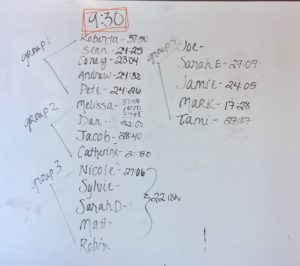 9:30
group 1
Roberta - 37:50
Sean - 24:25
Corey - 23:04
Andrew - 24:32
Pete - 24:26
group 2
Melissa -
Dan -
Jacob - 28:40
Catherine -
group 3
Nicole - 27:06
Sylvie -
Sarah D -
Matt -
Robin
22 ish
group
Joe -
Sarah E - 27:09
Jamie - 24:05
Mark - 17:28
Tami - 27:07